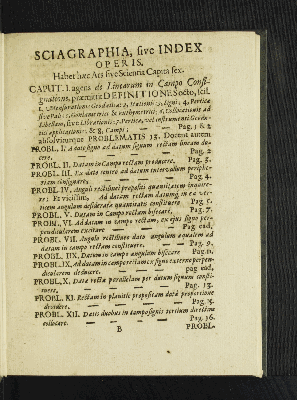 SCIAGRAPHIA, sive INDEX
OPERIS.
Habet hæc Ars sive Scientia Capita sex.
CAPUT. I. agens de Linearum in Campo Consi-
gnatione, præmittit DEFINITIONES octo, scil.
1. Mensurationis Geodeticæ: 2. Stationis: 3. Signi: 4. Perticæ
sive Pali: 5. &
Libellam, sive Librationis: 7. Perticæ, vel instrumenti Geode-
tici applicationis: & 8. Campi: — Pag. 1 & 2
absolviturque PROBLEMATIS 13. Docent autem
PROBL. I. A dato signo ad datum signum rectam lineam du-
cere. — — — Pag. 2
PROBL. II. Datam in Campo rectam producere. Pag. 3.
PROBL. III. Ex dato centro ad datum intervallum periphe-
riam consignare. — — Pag. 4.
PROBL. IV. Anguli rectilinei propositi quantitatem inqui-
rere: Et vicissim, Ad datam rectam datumq; in ea ver-
ticem angulum desideratæ quantitatis constituere Pag. 5.
PROBL. V. Datam in Campo rectam bisecare. Pag. 7.
PROBL. VI. Ad datam in campo rectam, ex ejus signo per-
pendicularem excitare — — Pag. ead.
PROBL. VII. Angulo rectilineo dato angulum æqualem ad
datam in campo rectam constituere. — Pag. 9.
PROBL. IIX. Datum in campo angulum bisecare Pag. 11.
PROBL. IX. Ad datam in campo rectam ex signo externo perpen-
dicularem deducere. — — pag. ead.
PROBL. X. Datæ rectæ parallelam per datum signum consti-
tuere. — — — Pag. 13.
PROBL. XI. Rectam in planitie propositam data proportione
dividere. — — — Pag. 15.
PROBL. XII. Datis duobus in campo signis tertium directim
collocare. — — — Pag. 16.
B PROBL.